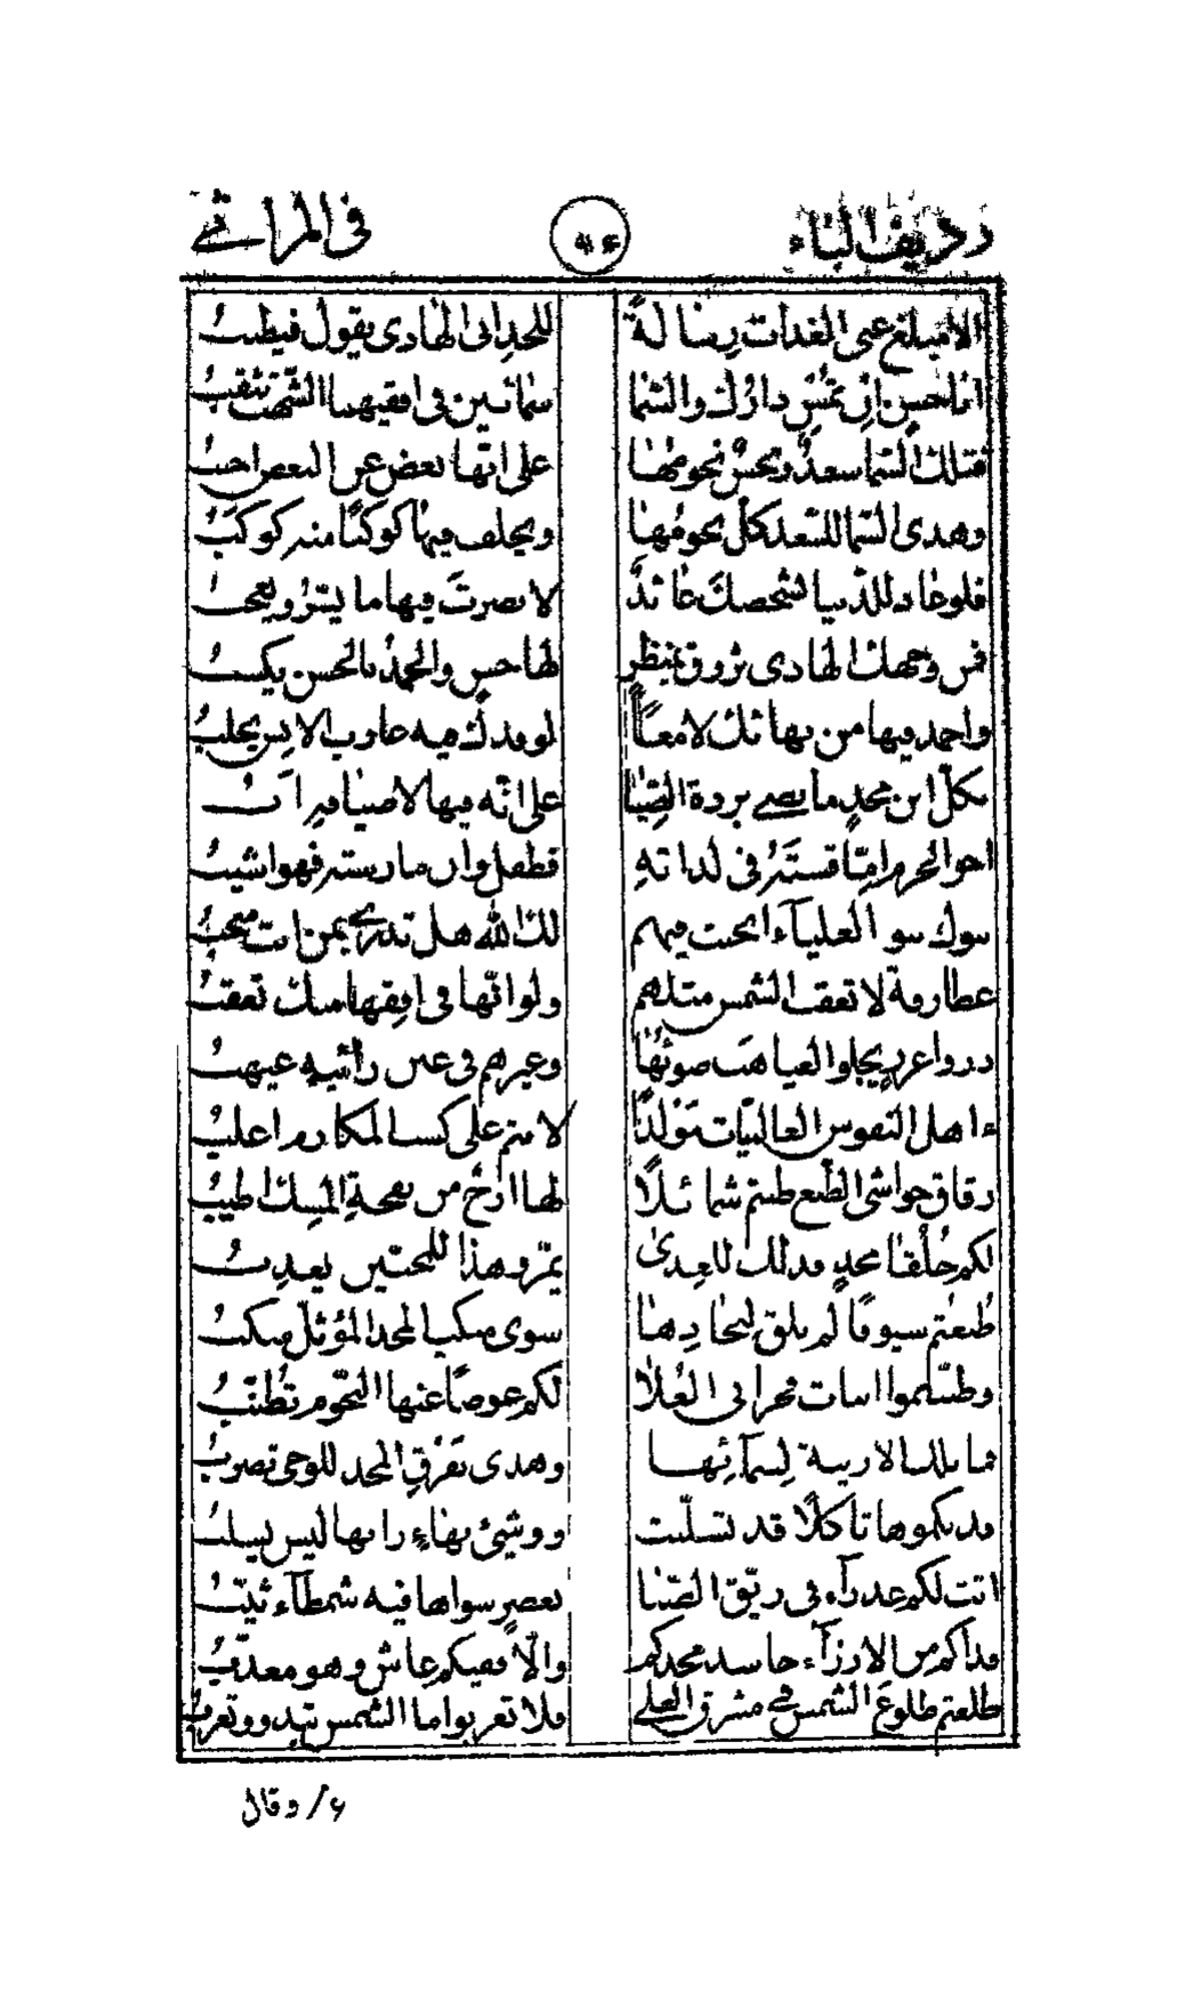 رديف الباء ٩٤ في المراثي
الا مبلغ عني الفداة رسالة للحد ابى الهادى يقول فيطب
ابا حسن ان تمس دارك والسما سمائين في افقيهما الشهب تثقب
فتلك السما سعد ونحس نجومها على انها بعض عن البعض اجنب
وهذى السما للسعد كل نجومها ويخلف فيها كوكبا منه كوكب
فلو عاد للدنيا لشخصك عائد لابصرت فيها ما يسر ويعجب
فمن وجهك الهادى يروق بمنظر لها حسن والمجد بالحسن يكسب
واحمد فيها من بهائك لامعا
بكل ابن مجد ما نضى بردة الصبا على انه فيها لاضيافه اب
اخو الحزم اما قسته في لداته فطفل وان مارسته فهو اشيب
بنوك بنو العلياء انجبت فيهم لك الله هل تدري بمن بات منجب
عطارفة لا تعقب الشمس مثلهم ولو انها في افقها منك تعقب
ذووا غرر يجلو الغياهب ضوئها وغيرهم في عين رائيه غيهب
ءاهل النفوس الغالبيات تولدا لانتم على كسب المكارم اغلب
رقاق حواشي الطبع طبتم شمائلا لها ارج من نفحة المسك اطيب
لكم خلقا مجد فذلك للعدى يمر وهذا للمحبين يعذب
طبعتم سيوفا لم يلق لنجادها سوى منكب المجد المؤثل منكب
وطنبتموا ابيات فخر ابى العلا لكم عوضا عنها النجوم تطنب
فما بلد الا ربية لسمائها وهذى بفرق المجد للوحى تضرب
قد نكموها ثاكلا قد تسلبت ووشي بهاء رابها ليس يسلب
اتت لكم عذراء في ريق الصبا بعصر سواها فيه شمطاء ثيب
فداكم من الارزاء حاسد مجدكم والا فيكم عاش وهو معذب
طلعتم طلوع الشمس في مشرق العلى فلا تغربوا ما الشمس تبدو وتغرب
وقال